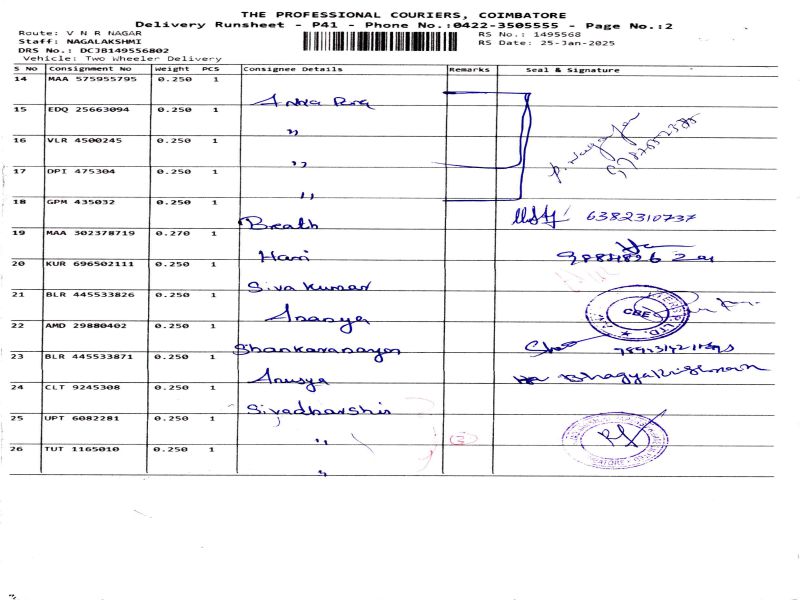 THE PROFESSIONAL COURIERS, COIMBATORE
Delivery Runsheet - P41 - Phone No.:0422-3505555 - Page No.:2
Route: V N R NAGAR RS No.: 1495568
Staff: NAGALAKSHMI RS Date: 25-Jan-2025
DRS No.: DCJB149556802
Vehicle: Two Wheeler Delivery
S No Consignment No Weight PCS Consignee Details Remarks Seal & Signature
14 MAA 575955795 0.250 1
15 EDQ 25663094 0.250 1
"
16 VLR 4500245 0.250 1
"
17 DPI 475304 0.250 1
"
18 GPM 435032 0.250 1
Breath 6382310737
19 MAA 302378719 0.270 1
Hari
20 KUR 696502111 0.250 1
Siva Kumar
21 BLR 445533826 0.250 1
CBE
22 AMD 29880402 0.250 1
Shankaranayan
23 BLR 445533871 0.250 1
Anusya
24 CLT 9245308 0.250 1
Sivadharshini
25 UPT 6082281 0.250 1
"
26 TUT 1165010 0.250 1
"